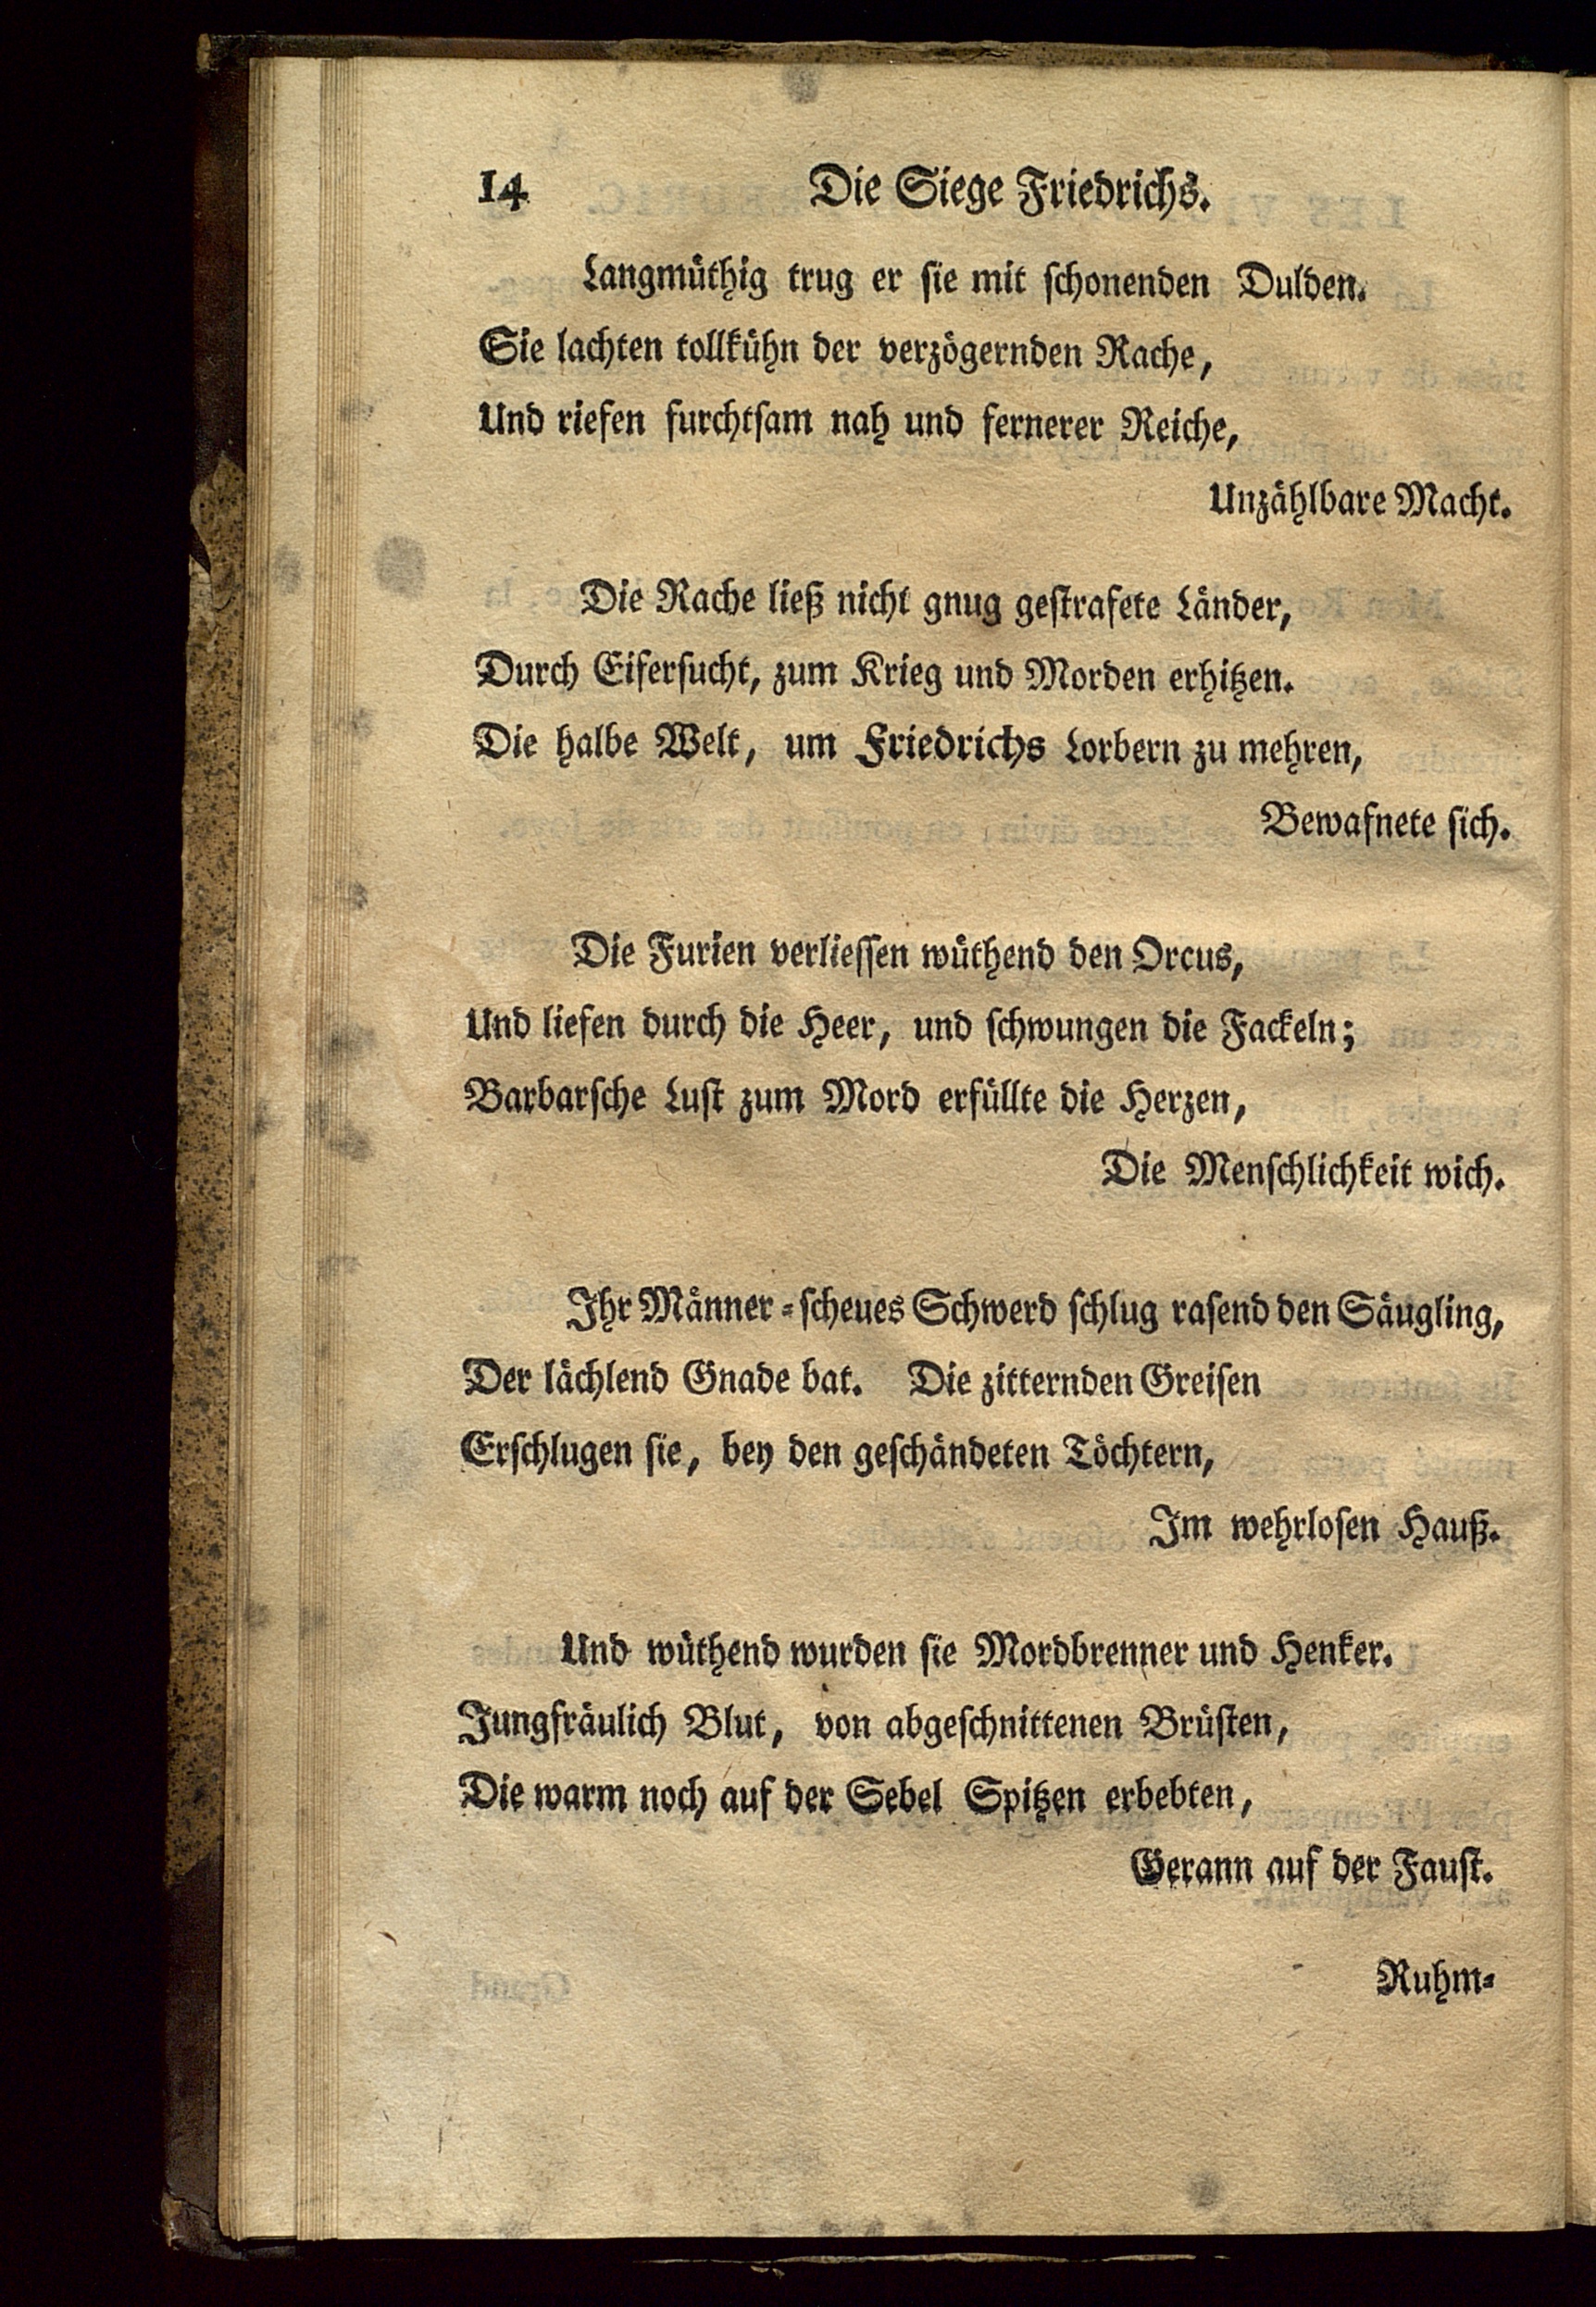 14 Die Siege Friedrichs.
Langmüthig trug er sie mit schonenden Dulden.
Sie lachten tollkühn der verzögernden Rache,
Und riefen furchtsam nah und fernerer Reiche,
Unzählbare Macht.
Die Rache ließ nicht gnug gestrafete Länder,
Durch Eifersucht, zum Krieg und Morden erhitzen.
Die halbe Welt, um Friedrichs Lorbern zu mehren,
Bewafnete sich.
Die Furien verliessen wüthend den Orcus,
Und liefen durch die Heer, und schwungen die Fackeln;
Barbarsche Lust zum Mord erfüllte die Herzen,
Die Menschlichkeit wich.
Ihr Männer-scheues Schwerd schlug rasend den Säugling,
Der lächlend Gnade bat. Die zitternden Greisen
Erschlugen sie, bey den geschändeten Töchtern,
Im wehrlosen Hauß.
Und wüthend wurden sie Mordbrenner und Henker.
Jungfräulich Blut, von abgeschnittenen Brüsten,
Die warm noch auf der Sebel Spitzen erbebten,
Gerann auf der Faust.
Ruhm-